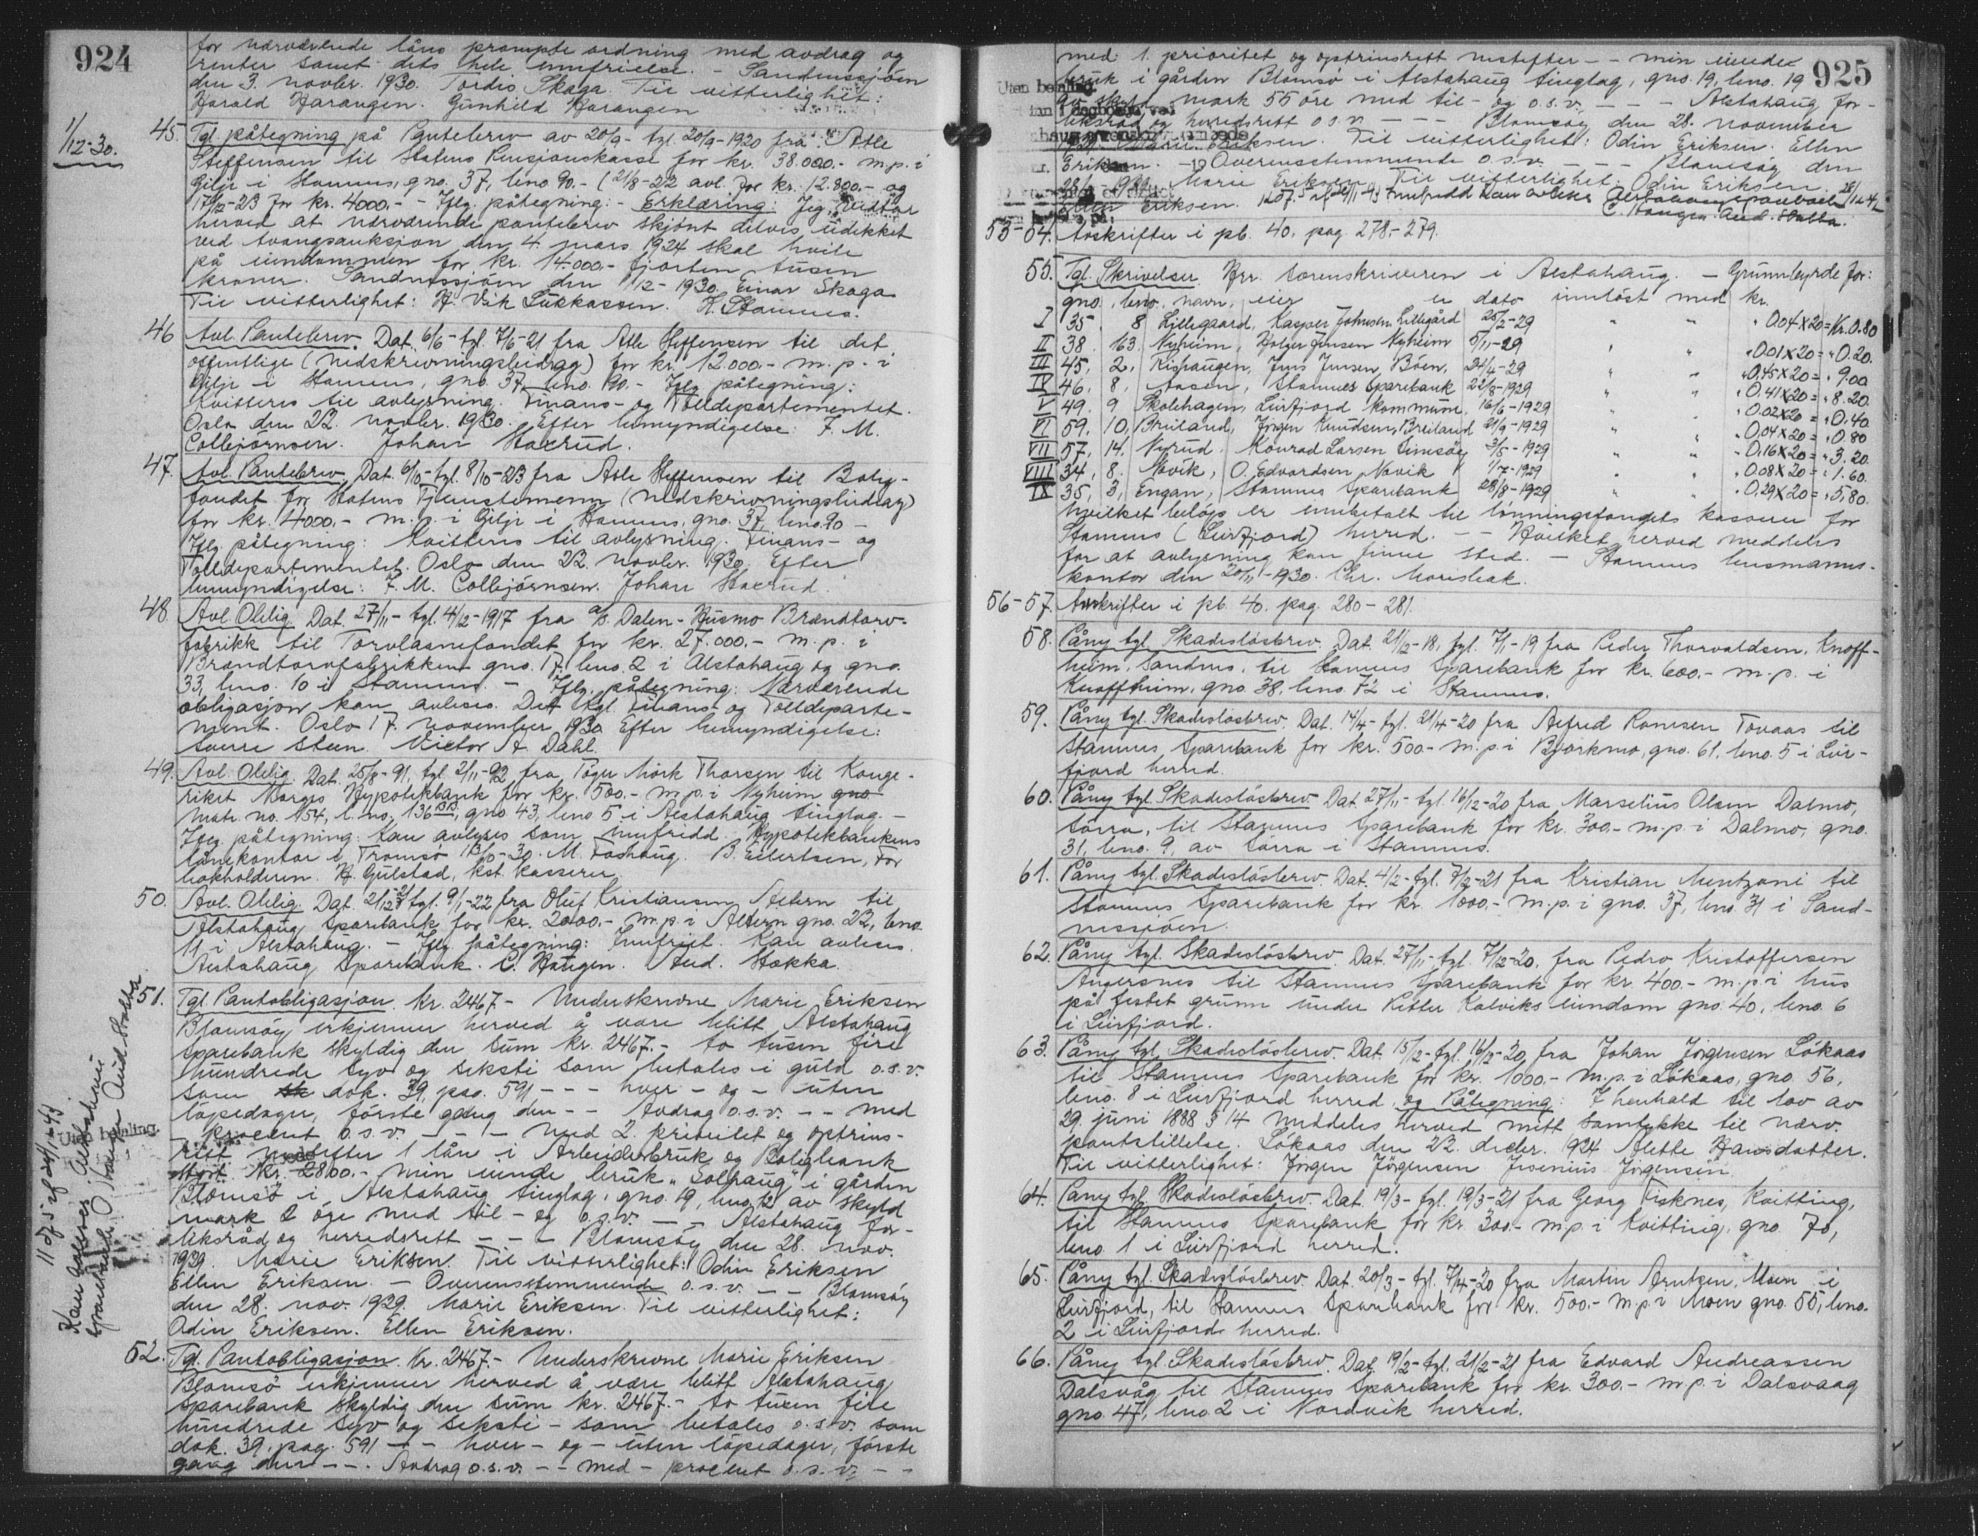 924
for nærværende låns prompte ordning med avdrag og
renter samt dets hele innfrielse. – Sandnessjøen
den 3. novbr. 1930. Tordis Skaga. Til vitterlighet:
Harald Harangen. Gunhild Harangen
1/12-30.
45. Tgl. påtegning på Pantebrev av 20/9 – tgl. 20/9-1920 fra Atle
Steffensen til Statens Pensjonskasse for kr. 38.000.- m.p. i
Gilje i Stamnes, gno. 37, bno. 90.- (21/8-22 avl. for kr. 12.800.- og
17/12-23 for kr. 4000.- – Iflg. påtegning: – Erklæring: Jeg vedtar
herved at nærværende pantebrev skjønt delvis udekket
ved tvangsauksjon den 4. mars 1924 skal hvile
på eiendommen for kr. 14.000.- fjorten tusen
kroner. Sandnessjøen den 1/12-1930. Einar Skaga
Til vitterlighet: H. Vik Lukkassen. H. Stamnes.
46 Avl. Pantebrev. Dat. 6/6 – tgl. 7/6-21 fra Atle Steffensen til det
offentlige (nedskrivningsbidrag) for kr. 12.000.- m.p. i
Gilje i Stamnes, gno. 37, bno. 90.- Iflg. påtegning:
Kvitteres til avlysning. Finans- og Tolldepartementet.
Oslo den 22. novbr. 1930. Efter bemyndigelse: F. M.
Collbjørnsen. Johan Haerud.
47. Avl. Pantebrev. Dat. 6/10 – tgl. 8/10-23 fra Atle Steffensen til Bolig-
fondet for Statens Tjenestemenn (nedskrivningsbidrag)
for kr. 4000.- m.p. i Gilje i Stamnes, gno. 37, bno. 90 –
Iflg. påtegning: Kvitteres til avlysning. Finans- og
Tolldepartementet. Oslo den 22. novbr. 1930. Efter
bemyndigelse: F. M. Collbjørnsen. Johan Haerud.
48. Avl. Oblig. Dat. 27/11 – tgl. 4/12-1917 fra A/S. Dalen-Husmo Brændtorv-
fabrikk til Torvlånefondet for kr. 27.000.- m.p. i
Brændtorvfabrikken gno. 17, bno. 2 i Alstahaug og gno.
33, bno. 10 i Stamnes. – Iflg. påtegning: Nærværende
obligasjon kan avlyses. Det kgl. Finans- og Tolldeparte-
ment. Oslo 17. november 1930 Efter bemyndigelse:
Sverre Steen. Victor A. Dahl.
49. Avl. Oblig. Dat. 25/8-91, tgl. 2/11-92 fra Tøger Mørk Thorsen til Konge-
riket Norges Hypotekbank for kr. 500.- m.p. i Nyheim gno
Matr. no. 154, l. no. 136 BB, gno 43, bno 5 i Alstahaug tinglag. –
Iflg. påtegning: Kan avlyses som innfridd. Hypotekbankens
lånekontor i Tromsø 13/5-30. M. Foshaug. B. Eilertsen, For
bokholderen. H. Gulstad, kst. kasserer
50. Avl. Oblig. Dat. 21/12-21 tgl. 9/1-22 fra Oluf Kristiansen Altern til
Alstahaug Sparebank for kr. 2000.- m.p. i Altern gno. 22, bno.
11 i Alstahaug. – Iflg. påtegning: Innfriet. Kan avlyses.
Alstahaug Sparebank. C. Haugen. And. Stokka
51. Tgl. Pantobligasjon kr. 2467.- Underskrevne Marie Eriksen
Blomsøy erkjenner herved å være blitt Alstahaug
Sparebank skyldig den sum kr. 2467.- to tusen fire
hundrede syv og seksti som betales i guld o.s.v.
som dok. 39, pag. 591 – – – hver – og – uten
løpedager, første gang den – – Avdrag o.s.v. – – med
– procent o.s.v. – – – med 2. prioritet og optrins-
rett nestefter 1 lån i Arbeiderbruk og Boligbank
stort kr. 2800.- min eiende bruk „Solhaug" i gården
Blomsø i Alstahaug tinglag, gno. 19, bno. 12 av skyld
mark 2 øre med til – og o.s.v. – – Alstahaug for-
liksråd og herredsrett – – – Blomsøy den 28. nov.
1929. Marie Eriksen. Til vitterlighet: Odin Eriksen
Ellen Eriksen. – Overensstemmende o.s.v. – – Blomsøy
den 28. nov. 1929. Marie Eriksen. Til vitterlighet:
Odin Eriksen. Ellen Eriksen.
Uten betaling.
Kan avlyses. Alstahaug
Sparebank
52. Tgl. Pantobligasjon. Kr. 2467.- Underskrevne Marie Eriksen
Blomsø erkjenner herved å være blitt Alstahaug
Sparebank skyldig den sum kr. 2467.- to tusen fire
hundrede syv og seksti – som betales o.s.v. som
dok. 39, pag. 591 – – hver – og – uten løpedager, første
gang den – – . Avdrag o.s.v. – – med – procent o.s.v. – –
925
med 1. prioritet og optrinsrett nestefter – – min eiende
bruk i gården Blomsø i Alstahaug tinglag, gno. 19, bno. 19
av skyld mark 55 øre med til – og o.s.v. – – – Alstahaug for-
liksråd og herredsrett o.s.v. – – – Blomsøy den 28. november
1929. Marie Eriksen. Til vitterlighet: Odin Eriksen. Ellen
Eriksen. – Overensstemmende o.s.v. – – – Blomsøy den
28/11 1929 Marie Eriksen. Til vitterlighet: Odin Eriksen.
Ellen Eriksen. Innfridd Kan avlyses Alstahaug Sparebank
C. Haugen And. Stokka.
Uten betaling.
53-54. Avskrifter i pb. 40. pag. 278 – 279.
55. Tgl. Skrivelser Hr. sorenskriveren i Alstahaug. – Grunnbyrde for:
gno. bno. navn, eier er dato innløst med kr.
I 35. 8 Lillegaard, Kasper Johnsen Lillegård 25/2-29 " " " 0.04 x 20 = kr. 0.80
II 38. 63. Nyheim, Holger Jensen Nyheim 5/11-29 " " " 0.01 x 20 = " 0.20
III 45, 2, Rishaugen, Jens Jensen, Båen, 24/4-29 " " " 0.45 x 20 = " 9.00
IV 46. 8. Aasen, Stamnes Sparebank 22/8-1929 " " " 0.41 x 20 = " 8.20
V 49. 9 Skolehagen, Leirfjord kommune, 16/6-1929 " " " 0.02 x 20 = " 0.40
VI 59, 10, Breiland, Jørgen Knudsen, Breiland 21/9-1929 " " " 0.04 x 20 = " 0.80
VII 57, 14. Nyrud, Konrad Larsen Simsøy 3/5-1929 " " " 0.16 x 20 = " 3.20
VIII 34, 8. Novik, O. Edvardsen, Novik 1/7-1929 " " " 0.08 x 20 = " 1.60
IX 35, 3, Engan, Stamnes Sparebank 28/8-1929 " " " 0.29 x 20 = " 5.80
hvilket beløp er innbetalt til lønningsfondets kasserer for
Stamnes (Leirfjord) herred. – – Hvilket herved meddeles
for at avlysning kan finne sted. – Stamnes lensmanns-
kontor den 20/11-1930. Chr. Morisbak.
56-57. Avskrifter i pb. 40. pag. 280 – 281.
58. Påny tgl. Skadesløsbrev. Dat. 21/12-18, tgl. 7/1-19 fra Peder Thorvaldsen, Knoff-
heim, Sandnes, til Stamnes Sparebank for kr. 600.- m.p. i
Knoffheim, gno. 38, bno. 72 i Stamnes.
59. Påny tgl. Skadesløsbrev. Dat. 14/4 – tgl. 21/4-20 fra Alfred Ronesen Tovaas til
Stamnes Sparebank for kr. 500- m.p. i Bjørkmo, gno. 61, bno. 5 i Leir-
fjord herred.
60. Påny tgl. Skadesløsbrev Dat. 27/11 – tgl. 16/12-20 fra Marselius Olsen Dalmo,
Sørra, til Stamnes Sparebank for kr. 300.- m.p. i Dalmo, gno.
31, bno. 9, av Sørra i Stamnes.
61. Påny tgl. Skadesløsbrev. Dat. 4/2 – tgl. 7/2-21 fra Kristian Mentzoni til
Stamnes Sparebank for kr. 1000.- m.p. i gno. 37, bno. 31 i Sand-
nessjøen.
62. Påny tgl. Skadesløsbrev. Dat. 27/11 – tgl. 7/12-20. fra Pedro Kristoffersen
Angersnes til Stamnes Sparebank for kr. 400.- m.p. i hus
på festet grunn under Petter Kalviks eiendom gno. 40, bno. 6
i Leirfjord.
63. Påny tgl. Skadesløsbrev. Dat. 15/12 – tgl. 16/12-20 fra Johan Jørgensen Løkaas
til Stamnes Sparebank for kr. 1000.- m.p. i Løkaas, gno. 56,
bno. 8 i Leirfjord herred, og Påtegning: I henhold til lov av
29. juni 1888 § 14 meddeles herved mitt samtykke til nærv.
pantstillelse. Løkaas den 22. decbr. 1924 Alette Hansdatter.
Til vitterlighet: Jørgen Jørgensen Jesenius Jørgensen
64. Påny tgl. Skadesløsbrev. Dat. 19/3 – tgl. 19/3-21 fra Georg Fisknes, Kvitting,
til Stamnes Sparebank for kr. 300.- m.p. i Kvitting, gno. 70,
bno. 1 i Leirfjord herred.
65. Påny tgl. Skadesløsbrev. Dat. 20/3 – tgl. 7/4-20 fra Martin Arntzen, Moen i
Leirfjord, til Stamnes Sparebank for kr. 500.- m.p. i Moen gno. 55, bno.
2 i Leirfjord herred.
66. Påny tgl. Skadesløsbrev. Dat. 19/2 – tgl. 21/2-21 fra Edvard Andreassen
Dalsvåg til Stamnes Sparebank for kr. 300.- m.p. i Dalsvaag
gno. 47, bno. 2 i Nordvik herred.